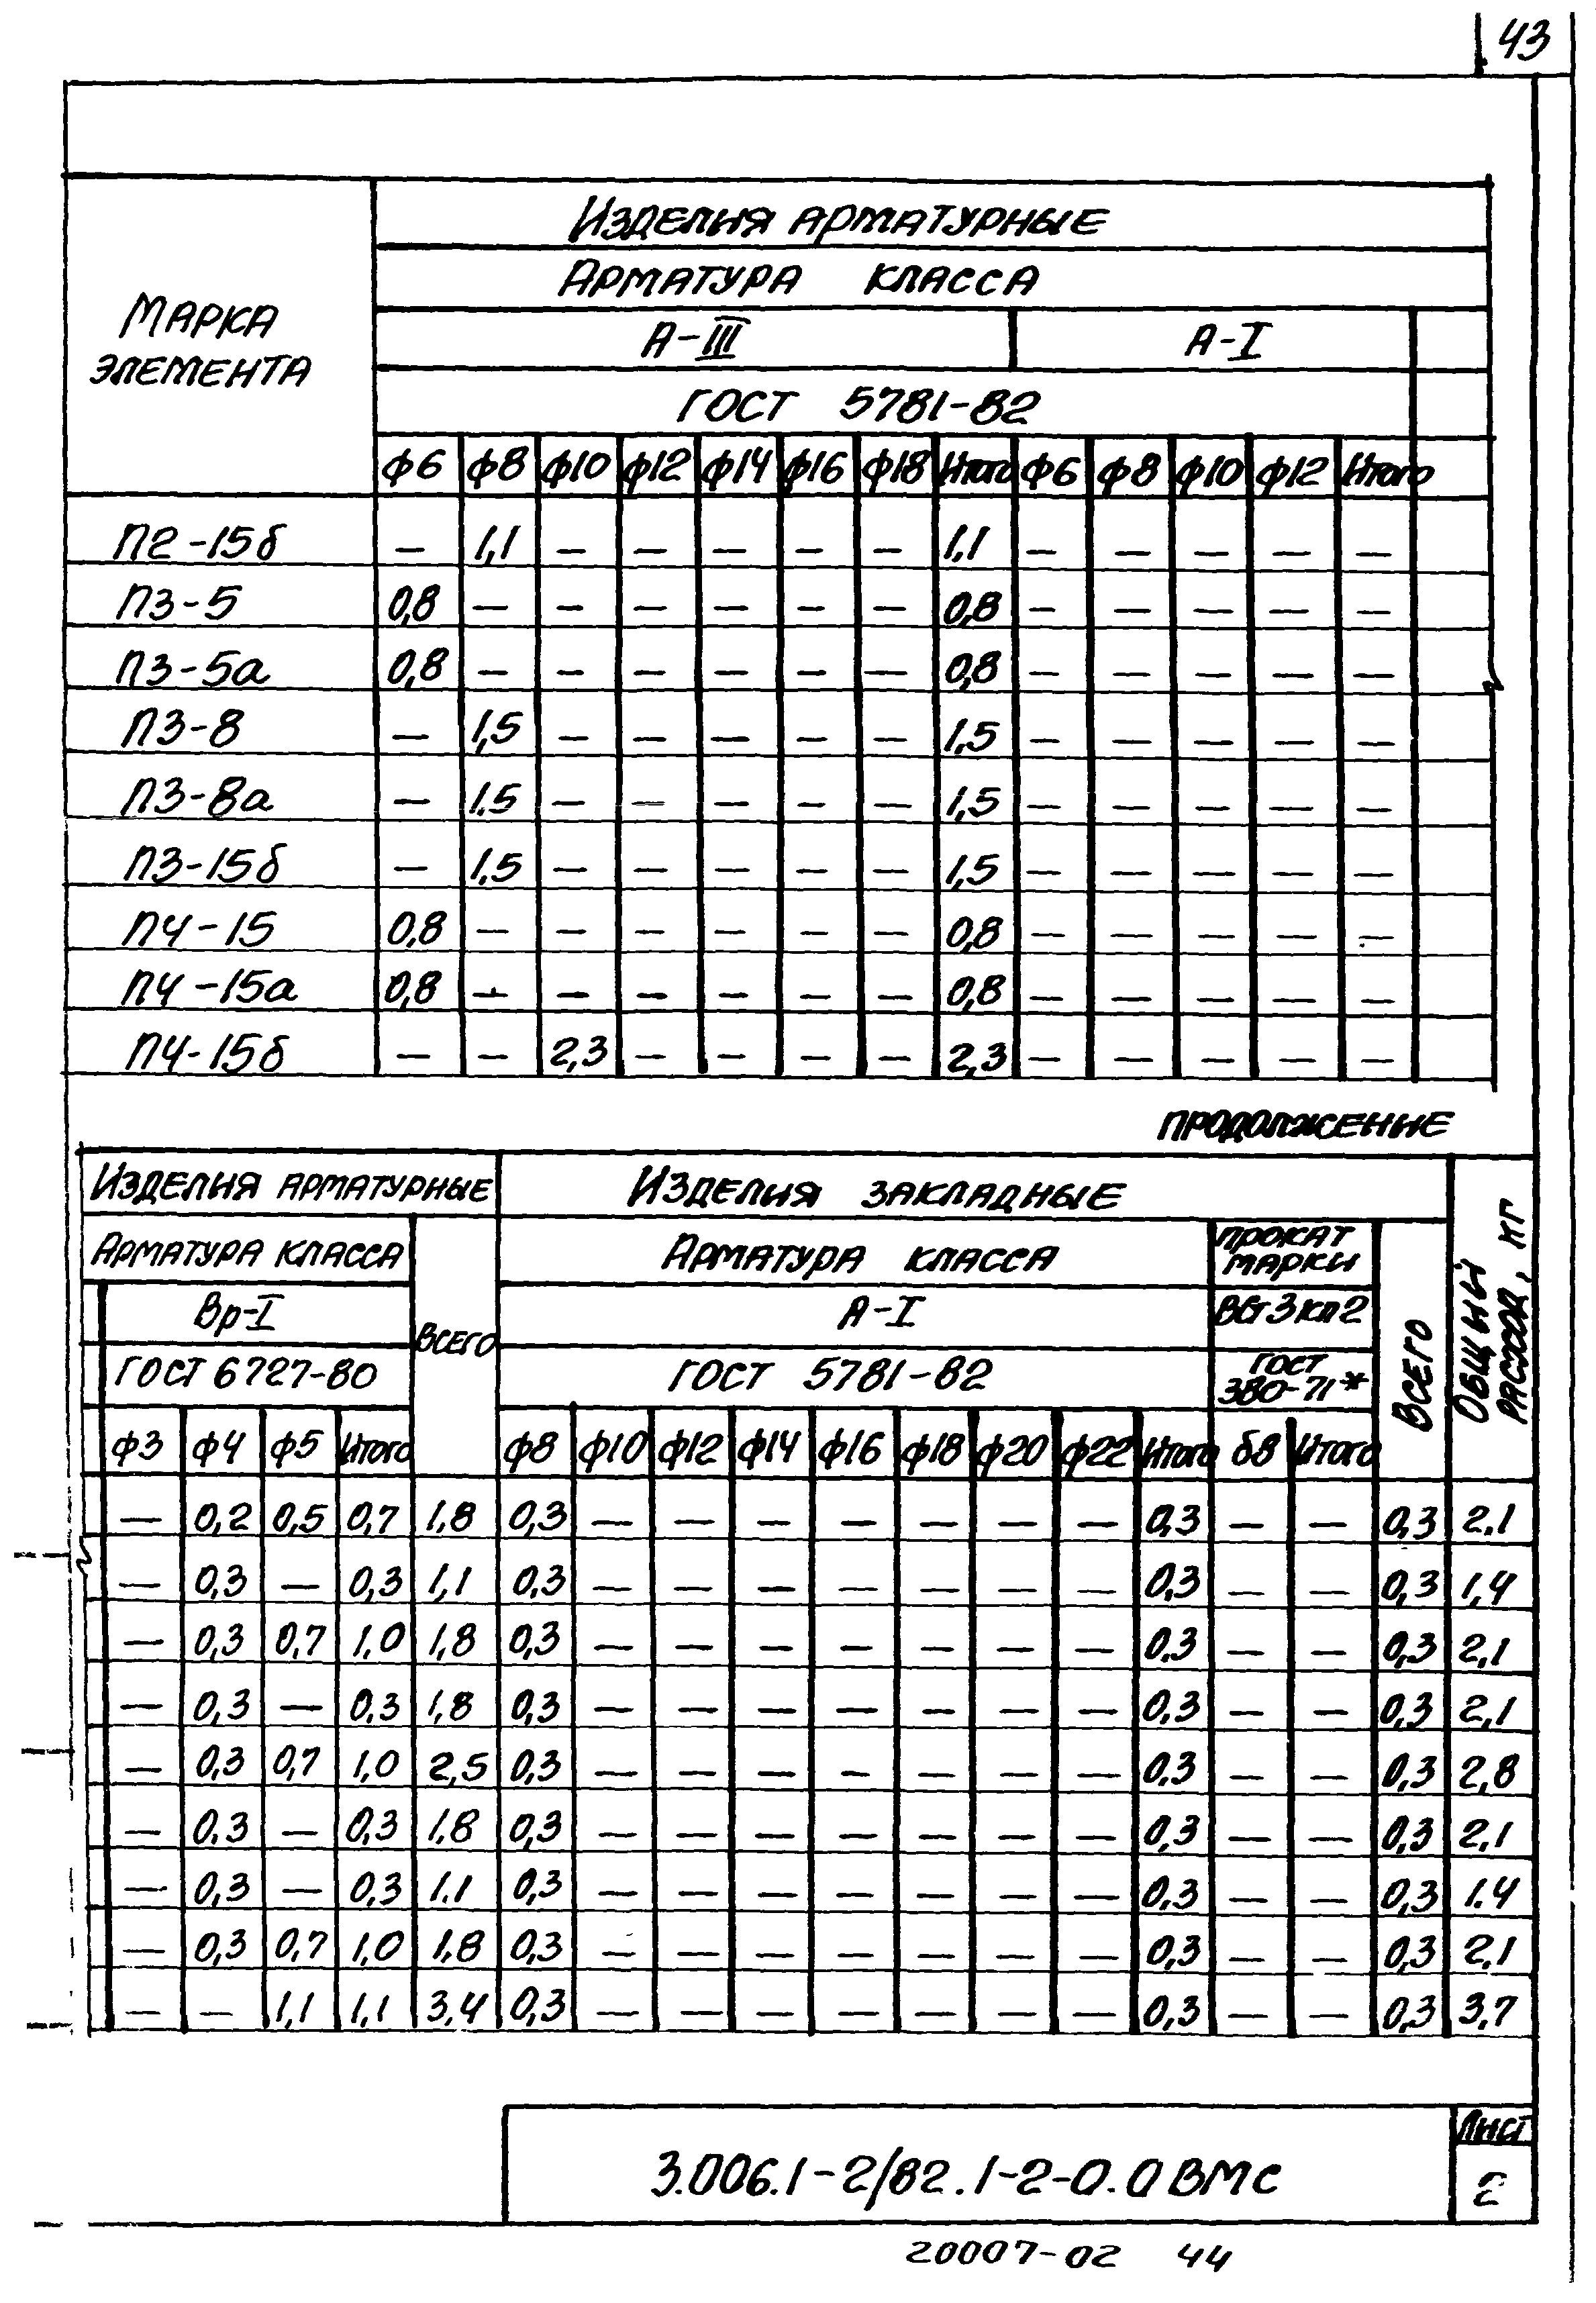 43
Изделия арматурные
Арматура класса
Марка элемента
А-III А-I
ГОСТ 5781-82
ф6 ф8 ф10 ф12 ф14 ф16 ф18 Итого ф6 ф8 ф10 ф12 Итого
П2-15б — 1,1 — — — — — 1,1 — — — — —
П3-5 0,8 — — — — — — 0,8 — — — — —
П3-5а 0,8 — — — — — — 0,8 — — — — —
П3-8 — 1,5 — — — — — 1,5 — — — — —
П3-8а — 1.5 — — — — — 1,5 — — — — —
П3-15б — 1,5 — — — — — 1,5 — — — — —
П4-15 0,8 — — — — — — 0,8 — — — — —
П4-15а 0,8 — — — — — — 0,8 — — — — —
П4-15б — — 2,3 — — — — 2,3 — — — — —
продолжение
Изделия арматурные Изделия закладные Общий расход, кг
Арматура класса Всего Арматура класса Прокат марки Всего
Вр-I А-I ВСт3кп2
ГОСТ 6727-80 ГОСТ 5781-82 ГОСТ 380-71*
ф3 ф4 ф5 Итого ф8 ф10 ф12 ф14 ф16 ф18 ф20 ф22 Итого δ8 Итого
— 0,2 0,5 0,7 1,8 0,3 — — — — — — — 0,3 — — 0,3 2.1
— 0,3 — 0,3 1,1 0,3 — — — — — — — 0,3 — — 0,3 1,4
— 0,3 0,7 1,0 1,8 0,3 — — — — — — — 0.3 — — 0,3 2,1
— 0,3 — 0,3 1,8 0,3 — — — — — — — 0,3 — — 0,3 2,1
— 0,3 0,7 1,0 2,5 0,3 — — — — — — — 0.3 — — 0,3 2,8
— 0.3 — 0,3 1.8 0,3 — — — — — — — 0,3 — — 0,3 2,1
— 0,3 — 0,3 1.1 0,3 — — — — — — — 0,3 — — 0,3 1.4
— 0,3 0,7 1,0 1,8 0,3 — — — — — — — 0,3 — — 0,3 2,1
— — 1,1 1,1 3,4 0,3 — — — — — — — 0,3 — — 0,3 3,7
3.006.1-2/82.1-2-0.0ВМс
Лист
2
20007-02 44